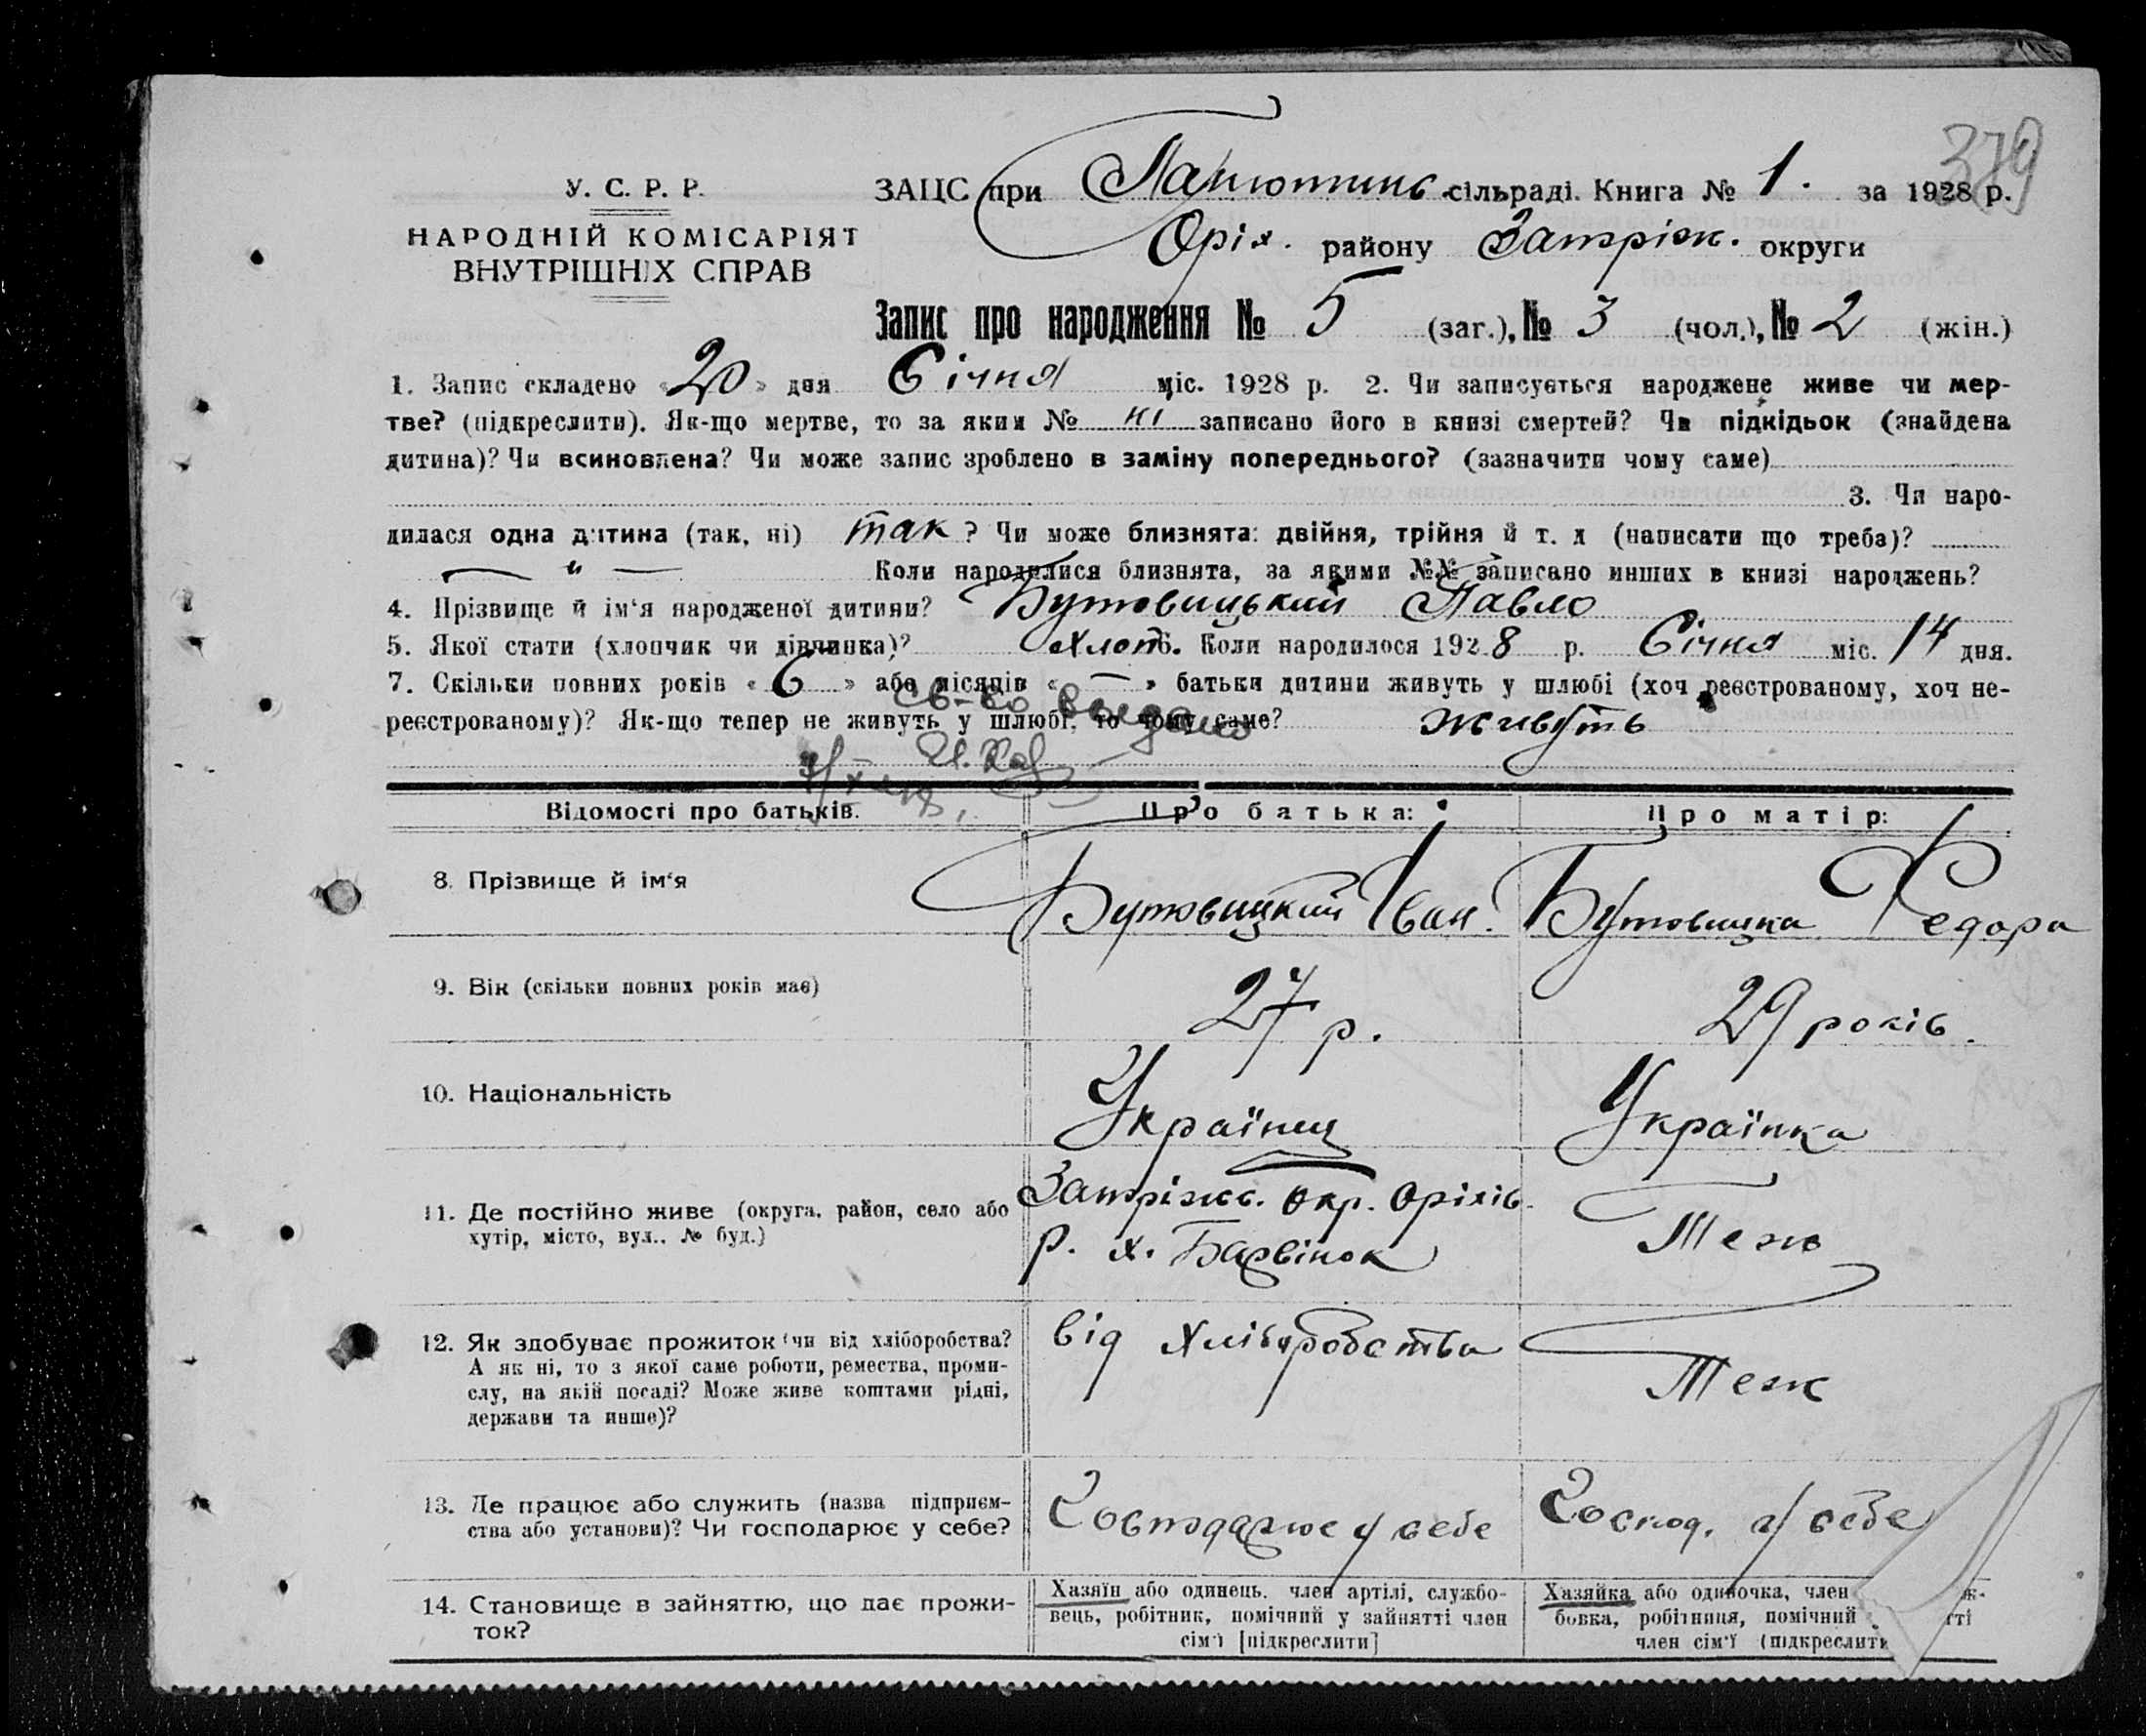 379
У. С. Р. Р.
НАРОДНІЙ КОМІСАРІЯТ
ВНУТРІШНІХ СПРАВ
ЗАЦС при Панютин. сільраді. Книга № 1. за 1928 р.
Оріх. району Запоріж. округи
Запис про народження № 5 (заг.), № 3 (чол.), № 2 (жін.)
1. Запис складено «20» дня Січня міс. 1928 р. 2. Чи записується народжене живе чи мер-
тве? (підкреслити). Як-що мертве, то за яким № ні записано його в книзі смертей? Чи підкідьок (знайдена
дитина)? Чи всиновлена? Чи може запис зроблено в заміну попереднього? (зазначити чому саме)
3. Чи наро-
дилася одна дитина (так, ні) так? Чи може близнята: двійня, трійня й т. д (написати що треба)?
— „ — Коли народилися близнята, за якими №№ записано инших в книзі народжень?
4. Прізвище й ім'я народженої дитини? Бутовицький Павло
5. Якої стати (хлопчик чи дівчинка)? Хлоп. 6. Коли народилося 1928 р. Січня міс. 14 дня.
7. Скільки повних років «6» або місяців «—» батьки дитини живуть у шлюбі (хоч реєстрованому, хоч не-
реєстрованому)? Як-що тепер не живуть у шлюбі, то чому саме? живуть
св-во выдано
Відомості про батьків. Про батька: Про матір:
8. Прізвище й ім'я Бутовицкий Іван. Бутовицка Федора
9. Вік (скільки повних років має) 27 р. 29 років.
10. Національність Українец Українка
11. Де постійно живе (округа, район, село або
хутір, місто, вул., № буд.)
Запріжс. Окр. Оріхів.
р. х. Барвінок
Теж
12. Як здобуває прожиток (чи від хліборобства?
А як ні, то з якої саме роботи, ремества, проми-
слу, на якій посаді? Може живе коштами рідні,
держави та инше)?
від Хліборобства
Теж
13. Де працює або служить (назва підприєм-
ства або установи)? Чи господарює у себе?
Господарює у себе
Господ. у себе
14. Становище в зайняттю, що дає прожи-
ток?
Хазяїн або одинець, член артілі, службо-
вець, робітник, помічний у зайнятті член
сім'ї [підкреслити]
Хазяйка або одиночка, член ж-
бовка, робітниця, помічний тті
член сім'ї (підкреслити